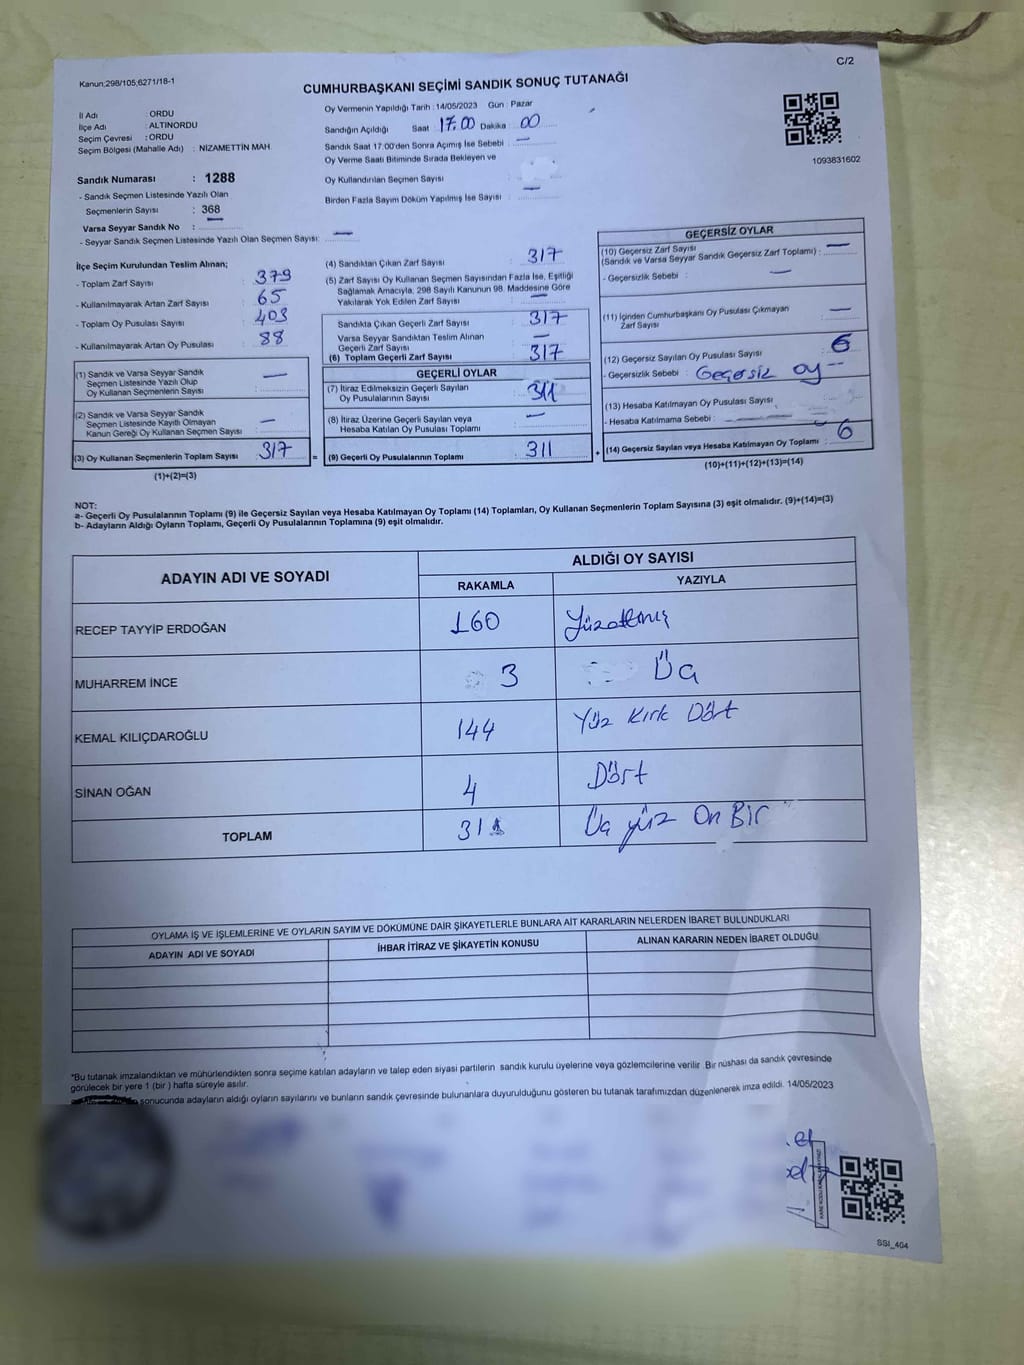 Kanun;298/105;6271/18-1
C/2
CUMHURBAŞKANI SEÇİMİ SANDIK SONUÇ TUTANAĞI
İl Adı : ORDU
İlçe Adı : ALTINORDU
Seçim Çevresi : ORDU
Seçim Bölgesi (Mahalle Adı) : NİZAMETTİN MAH.
Sandık Numarası : 1288
- Sandık Seçmen Listesinde Yazılı Olan
Seçmenlerin Sayısı : 368
Varsa Seyyar Sandık No : —
- Seyyar Sandık Seçmen Listesinde Yazılı Olan Seçmen Sayısı: —
Oy Vermenin Yapıldığı Tarih : 14/05/2023 Gün : Pazar
Sandığın Açıldığı Saat : 17.00 Dakika : 00
Sandık Saat 17:00'den Sonra Açımış İse Sebebi : —
Oy Verme Saati Bitiminde Sırada Bekleyen ve
Oy Kullandırılan Seçmen Sayısı :
Birden Fazla Sayım Döküm Yapılmış İse Sayısı : —
1093831602
İlçe Seçim Kurulundan Teslim Alınan;
- Toplam Zarf Sayısı : 379
- Kullanılmayarak Artan Zarf Sayısı : 65
- Toplam Oy Pusulası Sayısı : 403
- Kullanılmayarak Artan Oy Pusulası : 88
(1) Sandık ve Varsa Seyyar Sandık
Seçmen Listesinde Yazılı Olup
Oy Kullanan Seçmenlerin Sayısı : —
(2) Sandık ve Varsa Seyyar Sandık
Seçmen Listesinde Kayıtlı Olmayan
Kanun Gereği Oy Kullanan Seçmen Sayısı : —
(3) Oy Kullanan Seçmenlerin Toplam Sayısı : 317
(1)+(2)=(3)
=
(4) Sandıktan Çıkan Zarf Sayısı : 317
(5) Zarf Sayısı Oy Kullanan Seçmen Sayısından Fazla İse, Eşitliği
Sağlamak Amacıyla, 298 Sayılı Kanunun 98. Maddesine Göre
Yakılarak Yok Edilen Zarf Sayısı : —
Sandıkta Çıkan Geçerli Zarf Sayısı : 317
Varsa Seyyar Sandıktan Teslim Alınan
Geçerli Zarf Sayısı : —
(6) Toplam Geçerli Zarf Sayısı : 317
GEÇERLİ OYLAR
(7) İtiraz Edilmeksizin Geçerli Sayılan
Oy Pusulalarının Sayısı : 311
(8) İtiraz Üzerine Geçerli Sayılan veya
Hesaba Katılan Oy Pusulası Toplamı : —
(9) Geçerli Oy Pusulalarının Toplamı : 311
+
GEÇERSİZ OYLAR
(10) Geçersiz Zarf Sayısı
(Sandık ve Varsa Seyyar Sandık Geçersiz Zarf Toplamı) : —
- Geçersizlik Sebebi : —
(11) İçinden Cumhurbaşkanı Oy Pusulası Çıkmayan
Zarf Sayısı : —
(12) Geçersiz Sayılan Oy Pusulası Sayısı : 6
- Geçersizlik Sebebi : Geçersiz oy
(13) Hesaba Katılmayan Oy Pusulası Sayısı :
- Hesaba Katılmama Sebebi :
(14) Geçersiz Sayılan veya Hesaba Katılmayan Oy Toplamı : 6
(10)+(11)+(12)+(13)=(14)
NOT:
a- Geçerli Oy Pusulalarının Toplamı (9) ile Geçersiz Sayılan veya Hesaba Katılmayan Oy Toplamı (14) Toplamları, Oy Kullanan Seçmenlerin Toplam Sayısına (3) eşit olmalıdır. (9)+(14)=(3)
b- Adayların Aldığı Oyların Toplamı, Geçerli Oy Pusulalarının Toplamına (9) eşit olmalıdır.
ADAYIN ADI VE SOYADI
ALDIĞI OY SAYISI
RAKAMLA YAZIYLA
RECEP TAYYİP ERDOĞAN 160 Yüzaltmış
MUHARREM İNCE 3 Üç
KEMAL KILIÇDAROĞLU 144 Yüz Kırk Dört
SİNAN OĞAN 4 Dört
TOPLAM 311 Üç yüz On Bir
OYLAMA İŞ VE İŞLEMLERİNE VE OYLARIN SAYIM VE DÖKÜMÜNE DAİR ŞİKAYETLERLE BUNLARA AİT KARARLARIN NELERDEN İBARET BULUNDUKLARI
ADAYIN ADI VE SOYADI İHBAR İTİRAZ VE ŞİKAYETİN KONUSU ALINAN KARARIN NEDEN İBARET OLDUĞU
*Bu tutanak imzalandıktan ve mühürlendikten sonra seçime katılan adayların ve talep eden siyasi partilerin sandık kurulu üyelerine veya gözlemcilerine verilir. Bir nüshası da sandık çevresinde
görülecek bir yere 1 (bir ) hafta süreyle asılır.
sonucunda adayların aldığı oyların sayılarını ve bunların sandık çevresinde bulunanlara duyurulduğunu gösteren bu tutanak tarafımızdan düzenlenerek imza edildi. 14/05/2023
SSI_404